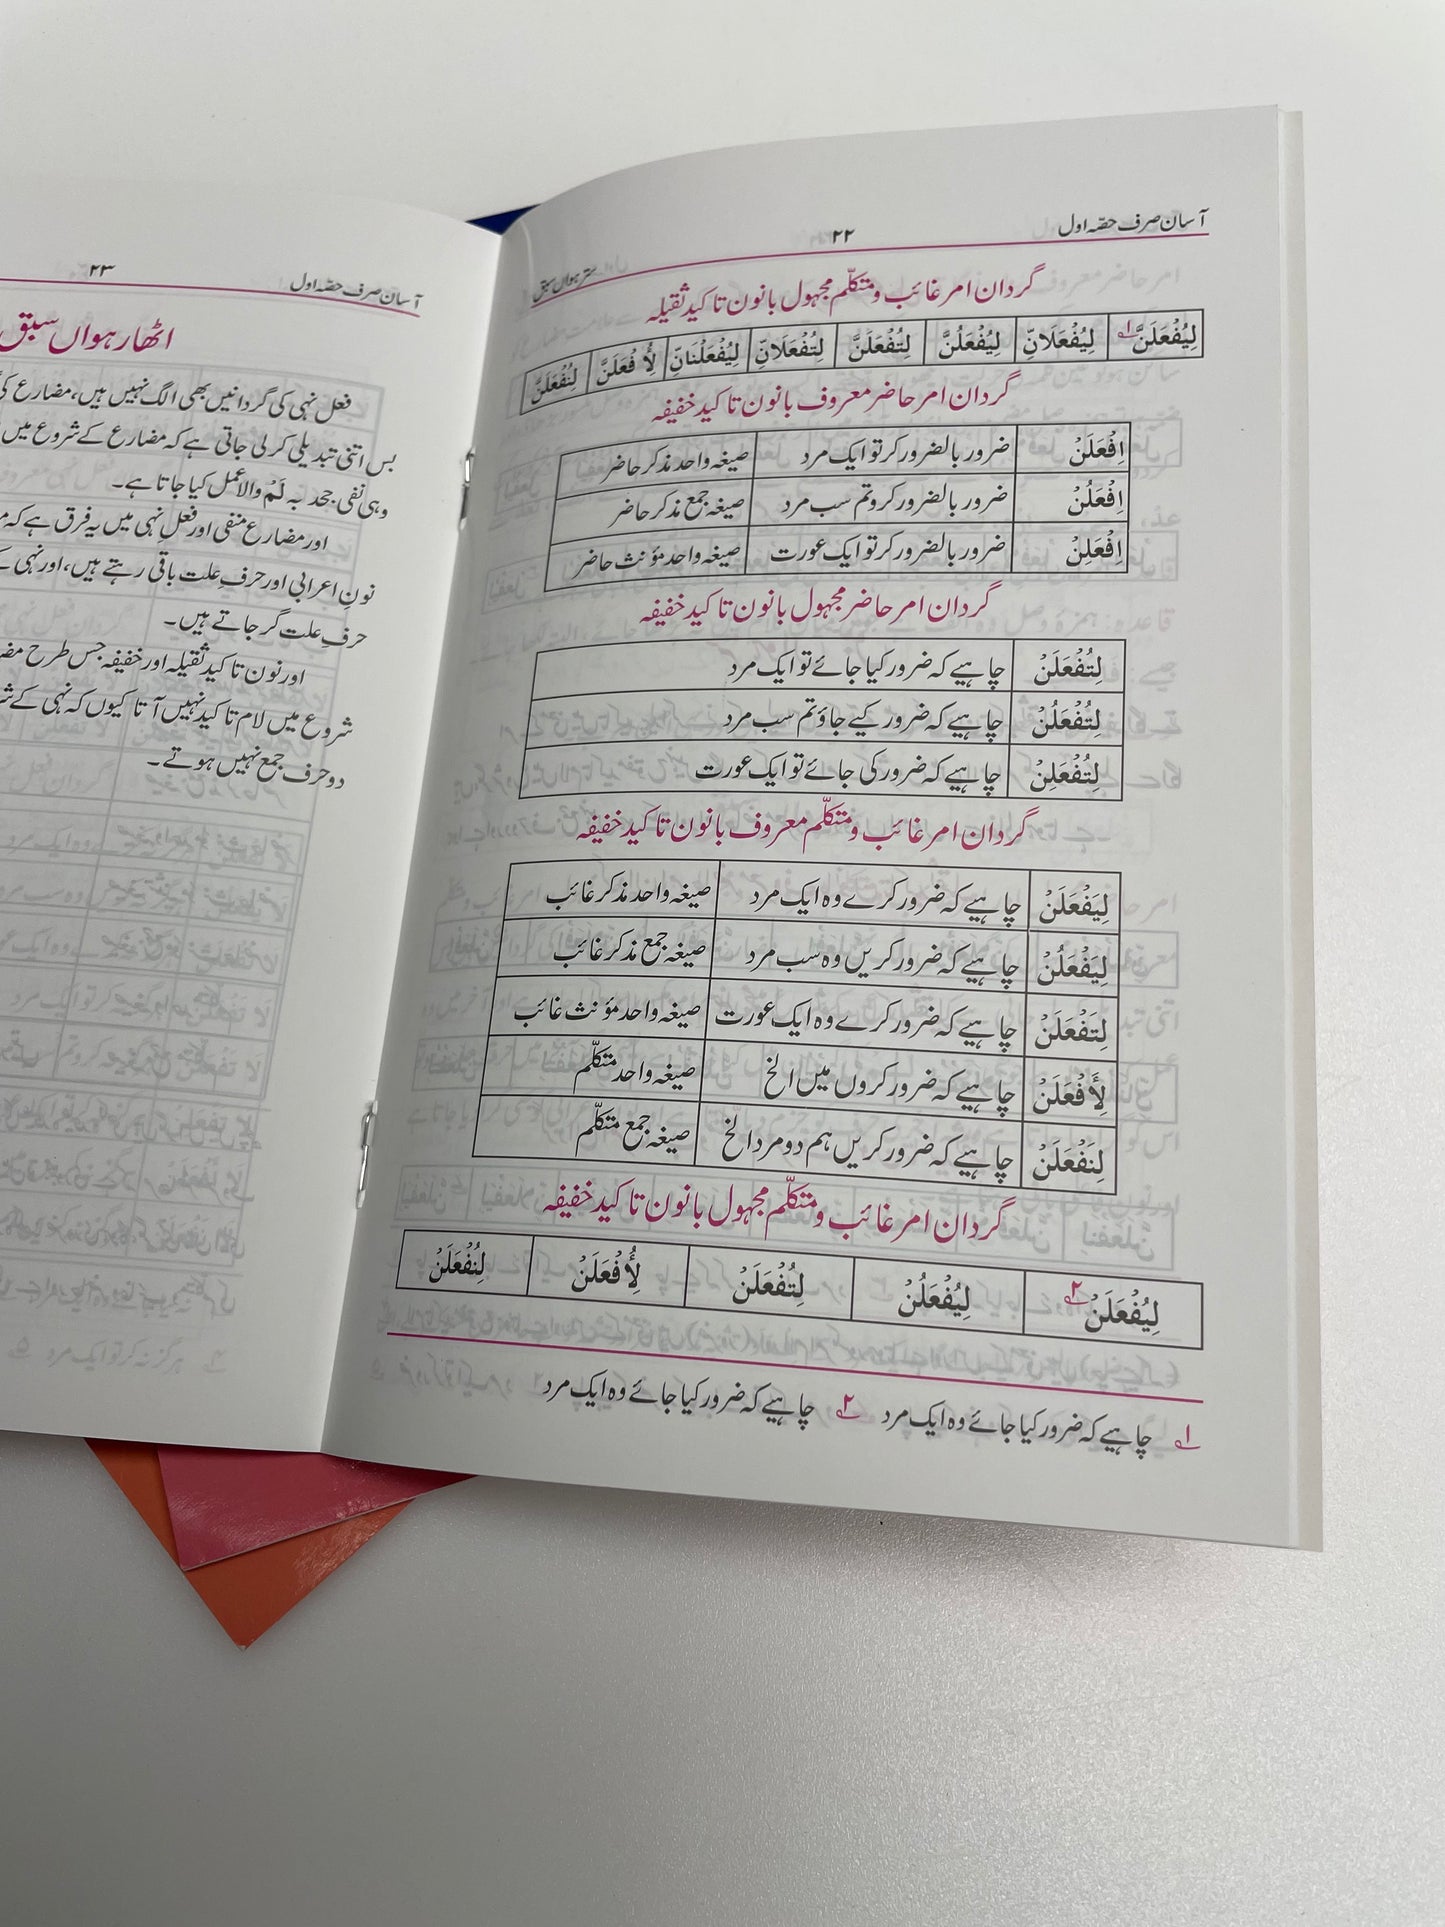 آسان صرف حصّہ اول ۲۲ سترہواں سبق
گردان امر غائب و متکلّم مجہول بانون تاکید ثقیلہ
لِيُفْعَلَنَّ ۱ لِيُفْعَلَانِّ لِيُفْعَلُنَّ لِتُفْعَلَنَّ لِتُفْعَلَانِّ لِيُفْعَلْنَانِّ لِأُفْعَلَنَّ لِنُفْعَلَنَّ
گردان امر حاضر معروف بانون تاکید خفیفہ
اِفْعَلَنْ ضرور بالضرور کر تو ایک مرد صیغہ واحد مذکر حاضر
اِفْعَلُنْ ضرور بالضرور کرو تم سب مرد صیغہ جمع مذکر حاضر
اِفْعَلِنْ ضرور بالضرور کر تو ایک عورت صیغہ واحد مؤنث حاضر
گردان امر حاضر مجہول بانون تاکید خفیفہ
لِتُفْعَلَنْ چاہیے کہ ضرور کیا جائے تو ایک مرد
لِتُفْعَلُنْ چاہیے کہ ضرور کیے جاؤ تم سب مرد
لِتُفْعَلِنْ چاہیے کہ ضرور کی جائے تو ایک عورت
گردان امر غائب و متکلّم معروف بانون تاکید خفیفہ
لِيَفْعَلَنْ چاہیے کہ ضرور کرے وہ ایک مرد صیغہ واحد مذکر غائب
لِيَفْعَلُنْ چاہیے کہ ضرور کریں وہ سب مرد صیغہ جمع مذکر غائب
لِتَفْعَلَنْ چاہیے کہ ضرور کرے وہ ایک عورت صیغہ واحد مؤنث غائب
لِأَفْعَلَنْ چاہیے کہ ضرور کروں میں الخ صیغہ واحد متکلّم
لِنَفْعَلَنْ چاہیے کہ ضرور کریں ہم دو مرد الخ صیغہ جمع متکلّم
گردان امر غائب و متکلّم مجہول بانون تاکید خفیفہ
لِيُفْعَلَنْ ۲ لِيُفْعَلُنْ لِتُفْعَلَنْ لِأُفْعَلَنْ لِنُفْعَلَنْ
۱ چاہیے کہ ضرور کیا جائے وہ ایک مرد ۲ چاہیے کہ ضرور کیا جائے وہ ایک مرد
آسان صرف حصّہ اول ۲۳
اٹھارہواں سبق
فعل نہی کی گردانیں بھی الگ نہیں ہیں، مضارع کی
بس اتنی تبدیلی کر لی جاتی ہے کہ مضارع کے شروع میں
وہی نفی جحد بہ لَمْ والا عمل کیا جاتا ہے۔
اور مضارع منفی اور فعلِ نہی میں یہ فرق ہے کہ
نونِ اعرابی اور حرفِ علت باقی رہتے ہیں، اور نہی
حرفِ علت گر جاتے ہیں۔
اور نون تاکید ثقیلہ اور خفیفہ جس طرح
شروع میں لام تاکید نہیں آتا کیوں کہ نہی کے
دو حرف جمع نہیں ہوتے۔